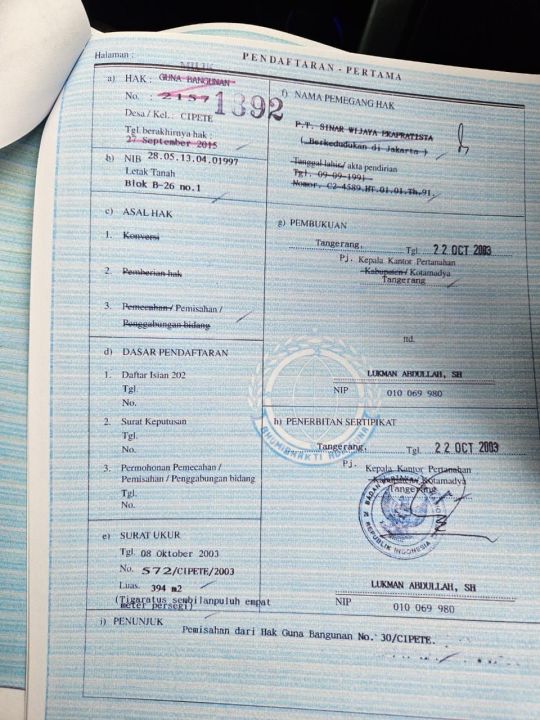 Halaman :
PENDAFTARAN - PERTAMA
MILIK
a) HAK : GUNA BANGUNAN
No. : 2157 1392
Desa / Kel. : CIPETE
Tgl. berakhirnya hak :
27 September 2015
b) NIB 28.05.13.04.01997
Letak Tanah
Blok B-26 no.1
c) ASAL HAK
1. Konversi
2. Pemberian hak
3. Pemecahan / Pemisahan /
Penggabungan bidang
d) DASAR PENDAFTARAN
1. Daftar Isian 202
Tgl.
No.
2. Surat Keputusan
Tgl.
No.
3. Permohonan Pemecahan /
Pemisahan / Penggabungan bidang
Tgl.
No.
e) SURAT UKUR
Tgl. 08 Oktober 2003
No. 572/CIPETE/2003
Luas. 394 m2
(Tigaratus sembilanpuluh empat
meter persegi)
f) NAMA PEMEGANG HAK
P.T. SINAR WIJAYA EKAPRATISTA
( Berkedudukan di Jakarta )
Tanggal lahir / akta pendirian
Tgl. 09-09-1991
Nomor. C2-4589.HT.01.01.Th.91.
g) PEMBUKUAN
Tangerang, Tgl. 22 OCT 2003
Pj. Kepala Kantor Pertanahan
Kabupaten / Kotamadya
Tangerang
ttd.
LUKMAN ABDULLAH, SH
NIP 010 069 980
h) PENERBITAN SERTIPIKAT
Tangerang, Tgl. 22 OCT 2003
Pj. Kepala Kantor Pertanahan
Kabupaten / Kotamadya
Tangerang
BADAN
REPUBLIK INDONESIA
LUKMAN ABDULLAH, SH
NIP 010 069 980
i) PENUNJUK
Pemisahan dari Hak Guna Bangunan No. 30/CIPETE.